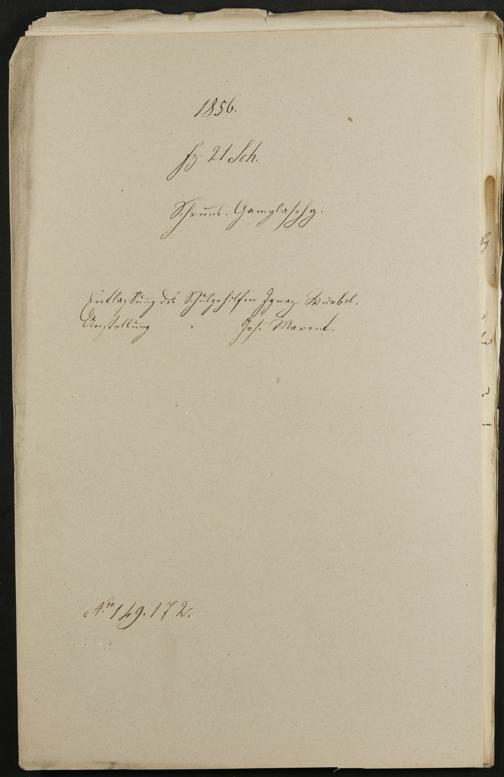 1856.
Fz. 21 Sch.
Schruns. Gamplaschg.
Entlassung des Schulgehilfen Ignaz Wurbel.
Anstellung " Jos. Marent.
Nro 149. 172.